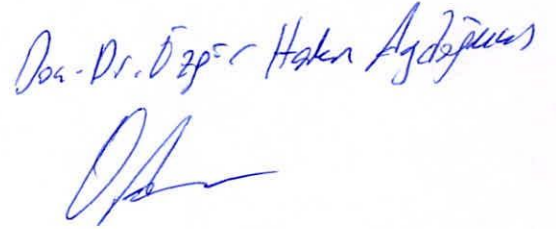 Doç. Dr. Özgür Hakan Aydoğmuş